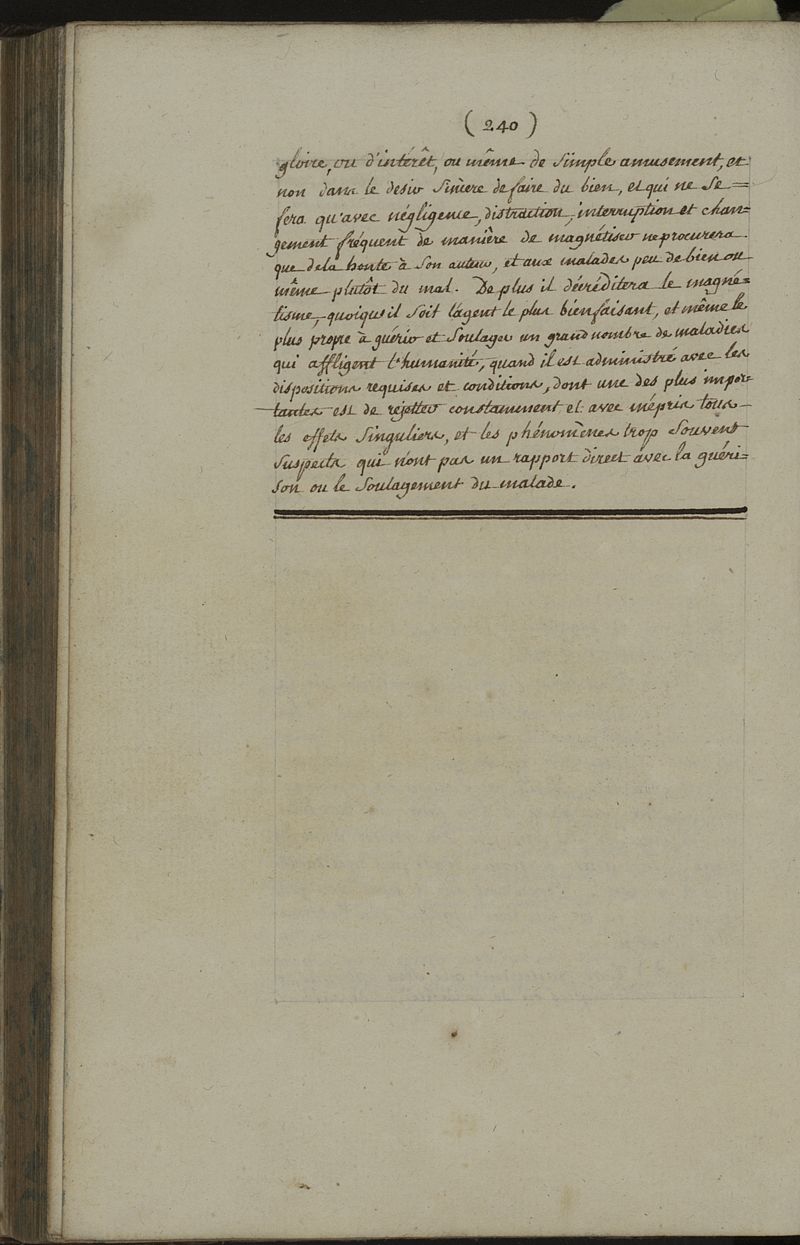 ( 240 )
gloire, ou d'intérêt, ou même de simple amusement, et
non dans le desir sincere de faire du bien, et qui ne se =
fera qu'avec négligence, distraction, interruption et chan=
gement fréquent de manière de magnétiser ne procurera
que de la honte à son auteur, et aux malades peu de bien ou
même plutôt du mal. De plus il décréditera le magné=
tisme, quoiqu'il soit l'agent le plus bienfaisant, et même le
plus propre à guérir et soulager un grand nombre de maladies
qui affligent l'humanité, quand il est administré avec les
dispositions requises et conditions, dont une des plus impor
tantes est de rejetter constamment et avec mépris tous
les effets singuliers, et les phénomenes trop souvent
suspects qui n'ont pas un rapport direct avec la guéri=
son ou le soulagement du malade.